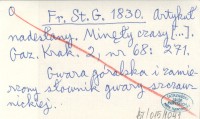 O Fr. St. G. 1830. Artykuł
nadesłany. Minęły czasy [...].
Gaz. Krak. 2, nr 68: 271.
Gwara góralska i zamie-
rzony słownik gwary szczaw-
nickiej.